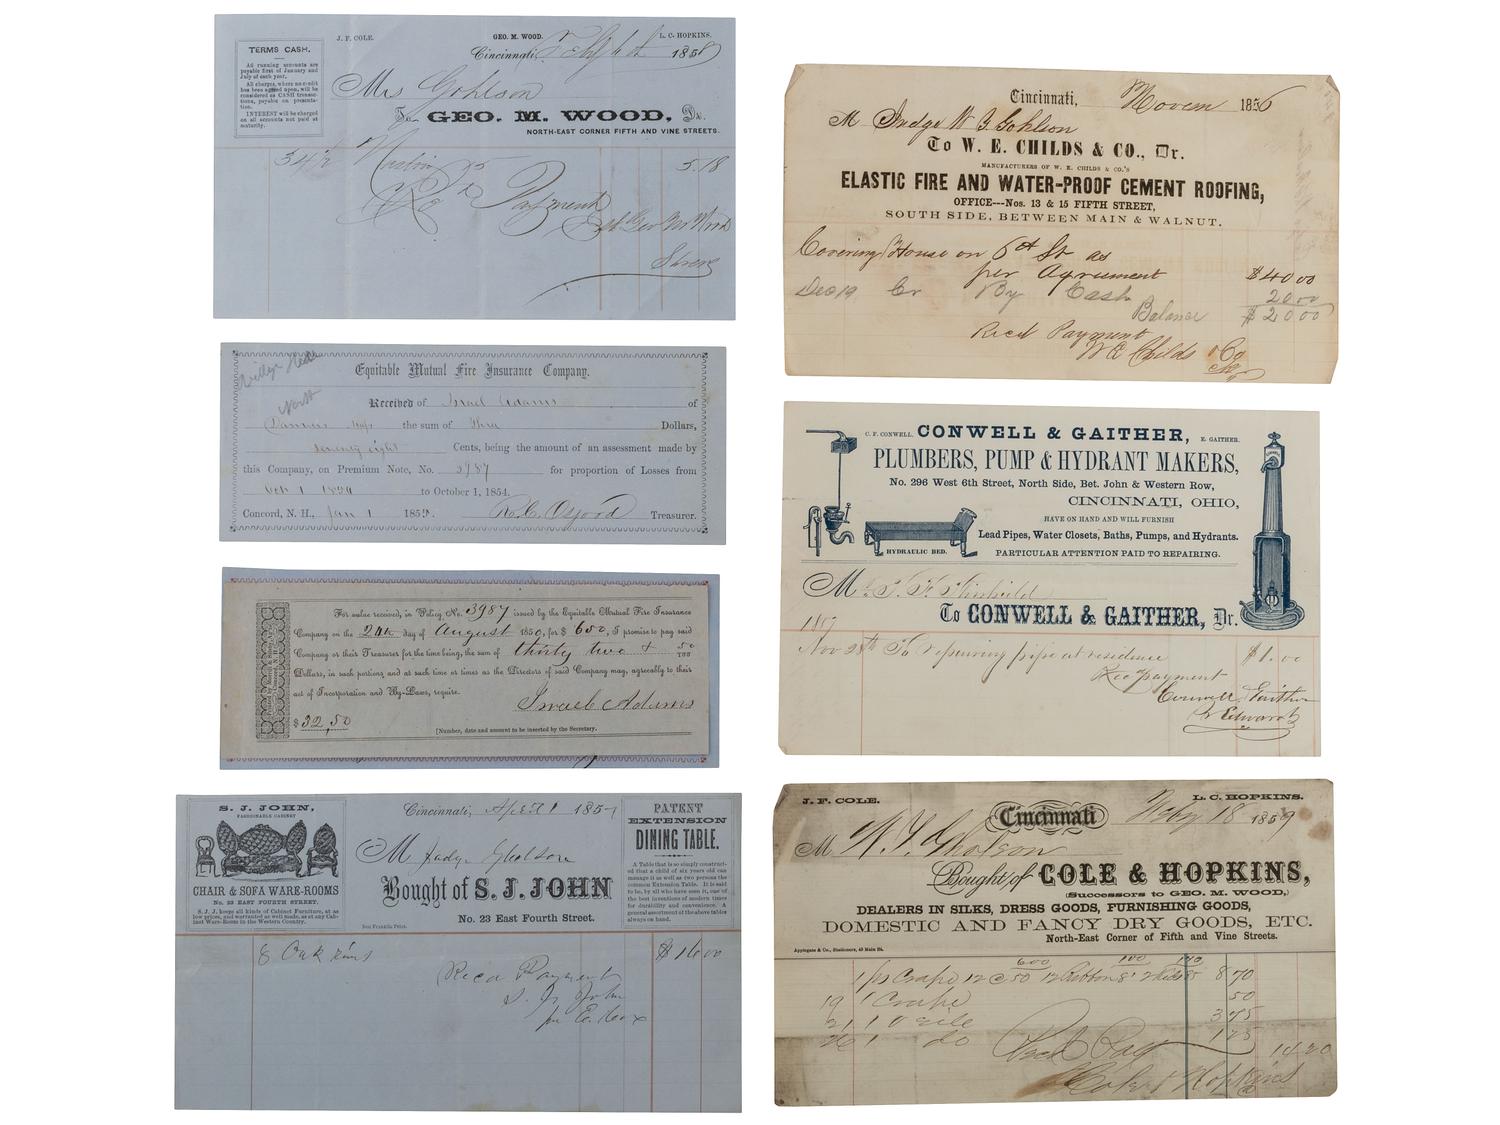 TERMS CASH.
All running accounts are
payable first of January and
July of each year.
All charges, where no credit
has been agreed upon, will be
considered as CASH transac-
tions, payable on presenta-
tion.
INTEREST will be charged
on all accounts not paid at
maturity.
J. F. COLE. GEO. M. WOOD. L. C. HOPKINS.
Cincinnati, 185
Mrs Gohlson
To GEO. M. WOOD, Dr.
NORTH-EAST CORNER FIFTH AND VINE STREETS.
34½ 5.18
Payment
Geo M Wood
Equitable Mutual Fire Insurance Company.
Received of Israel Adams of
the sum of Three Dollars,
seventy eight Cents, being the amount of an assessment made by
this Company, on Premium Note, No. 3987 for proportion of Losses from
Oct 1 to October 1, 1854.
Concord, N. H., Jan 1 185 R. C. Osgood Treasurer.
For value received, in Policy No. 3987 issued by the Equitable Mutual Fire Insurance
Company on the 24th day of August 1850, for $ 650, I promise to pay said
Company or their Treasurer for the time being, the sum of thirty two & 50/100
Dollars, in such portions and at such time or times as the Directors of said Company may, agreeably to their
act of Incorporation and By-Laws, require.
Israel Adams
$32,50
[Number, date and amount to be inserted by the Secretary.
S. J. JOHN,
FASHIONABLE CABINET
CHAIR & SOFA WARE-ROOMS
No. 23 EAST FOURTH STREET.
S. J. J. keeps all kinds of Cabinet Furniture, at as
low prices, and warranted as well made, as at any Cab-
inet Ware-Room in the Western Country.
Cincinnati, April 1 1857
M Judge Gholson
Bought of S. J. JOHN
No. 23 East Fourth Street.
Ben Franklin Print.
PATENT
EXTENSION
DINING TABLE.
A Table that is so simply construct-
ed that a child of six years old can
manage it as well as two persons the
common Extension Table. It is said
to be, by all who have seen it, one of
the best inventions of modern times
for durability and convenience. A
general assortment of the above tables
always on hand.
8 Oak $ 16 00
Recd Payment
S. J. John
Cincinnati, Novem 1856
M Judge W Y Gohlson
To W. E. CHILDS & CO., Dr.
MANUFACTURERS OF W. E. CHILDS & CO.'S
ELASTIC FIRE AND WATER-PROOF CEMENT ROOFING,
OFFICE---Nos. 13 & 15 FIFTH STREET,
SOUTH SIDE, BETWEEN MAIN & WALNUT.
Covering House on 6th St as
per Agreement $ 40 00
Dec 19 Cr By Cash 20.00
Balance $ 20 00
Recd Payment
W E Childs & Co
C. F. CONWELL. CONWELL & GAITHER, E. GAITHER.
PLUMBERS, PUMP & HYDRANT MAKERS,
No. 296 West 6th Street, North Side, Bet. John & Western Row,
CINCINNATI, OHIO,
HAVE ON HAND AND WILL FURNISH
Lead Pipes, Water Closets, Baths, Pumps, and Hydrants.
HYDRAULIC BED. PARTICULAR ATTENTION PAID TO REPAIRING.
To CONWELL & GAITHER, Dr.
185
Nov 28th To repairing pipe at residence $1.00
Rec payment
Conwell Gaither
J. F. COLE. L. C. HOPKINS.
Cincinnati Feby 18 1859
M W. Y. Gholson
Bought of COLE & HOPKINS,
(Successors to GEO. M. WOOD,)
DEALERS IN SILKS, DRESS GOODS, FURNISHING GOODS,
DOMESTIC AND FANCY DRY GOODS, ETC.
North-East Corner of Fifth and Vine Streets.
Applegate & Co., Stationers, 43 Main St.
600 100 170
1 ps Crape 12 C 50 12 Ribbon 8 85 8 70
19 1 Crape 50
21 1 3 75
26 1 do 1 25
Recd Pay 14 20
Cole & Hopkins